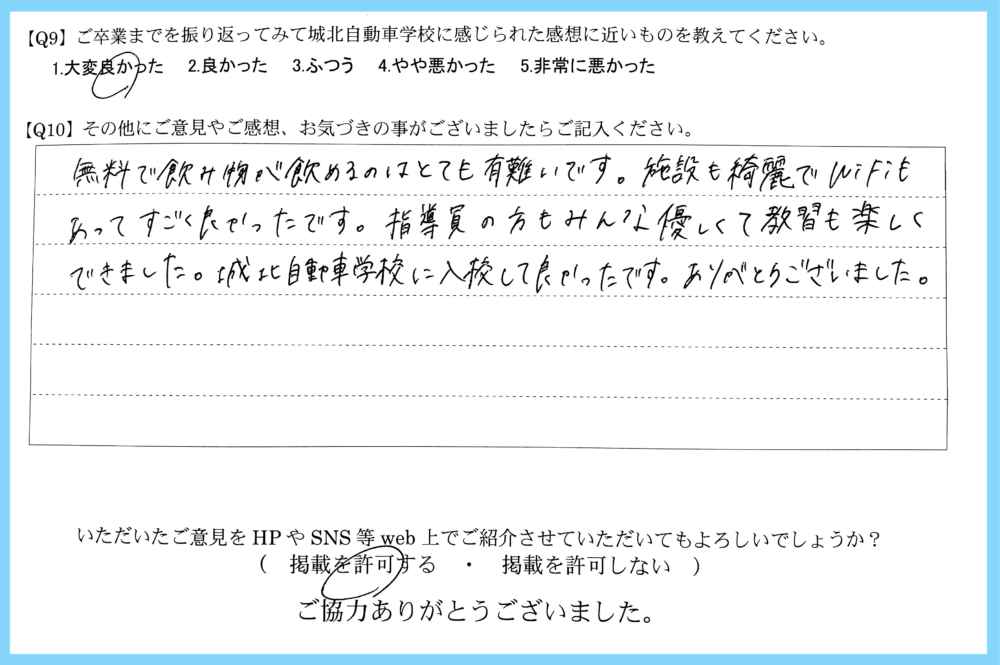 【Q9】ご卒業までを振り返ってみて城北自動車学校に感じられた感想に近いものを教えてください。
1.大変良かった 2.良かった 3.ふつう 4.やや悪かった 5.非常に悪かった
【Q10】その他にご意見やご感想、お気づきの事がございましたらご記入ください。
無料で飲み物が飲めるのはとても有難いです。施設も綺麗でWiFiも
あってすごく良かったです。指導員の方もみんな優しくて教習も楽しく
できました。城北自動車学校に入校して良かったです。ありがとうございました。
いただいたご意見をHPやSNS等web上でご紹介させていただいてもよろしいでしょうか?
( 掲載を許可する ・ 掲載を許可しない )
ご協力ありがとうございました。